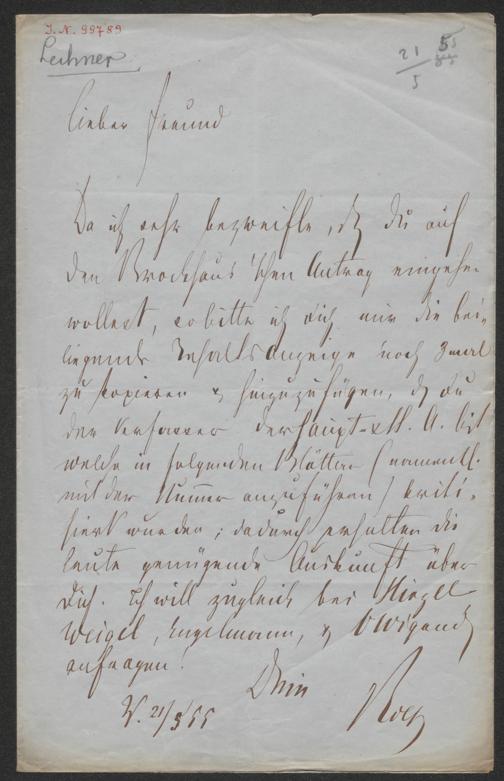 I. N. 99789
Lechner
21/5 55
lieber Freund
Da ich sehr bezweifle, dß du auf
den Brockhaus'schen Antrag eingehen
wollest, so bitte ich dich mir die bei-
liegende Inhaltsanzeige noch 3mal
zu kopieren & hinzuzufügen, dß du
der Verfasser der Haupt A. bist
welche in folgenden Blättern (namentl.
mit der Numer anzuführen) kriti-
siert wurden; dadurch erhalten die
leute genügende Auskunft über
dich. Ich will zugleich bei Hirzel
Weigel, Engelmann, & OWigand
anfragen.
Dein
W. 21/5 55